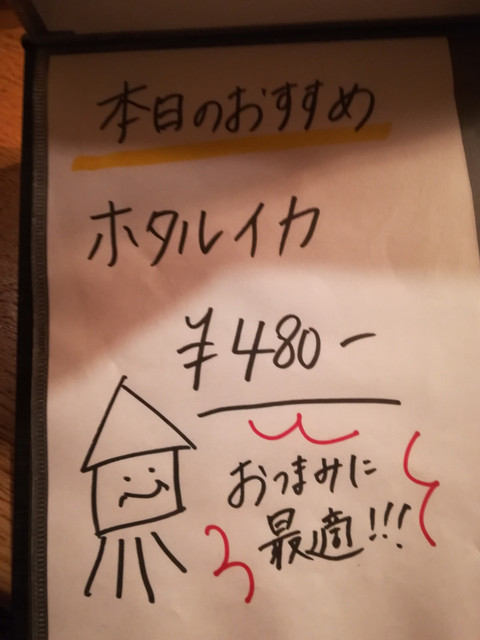 本日のおすすめ
ホタルイカ
¥480-
おつまみに
最適!!!